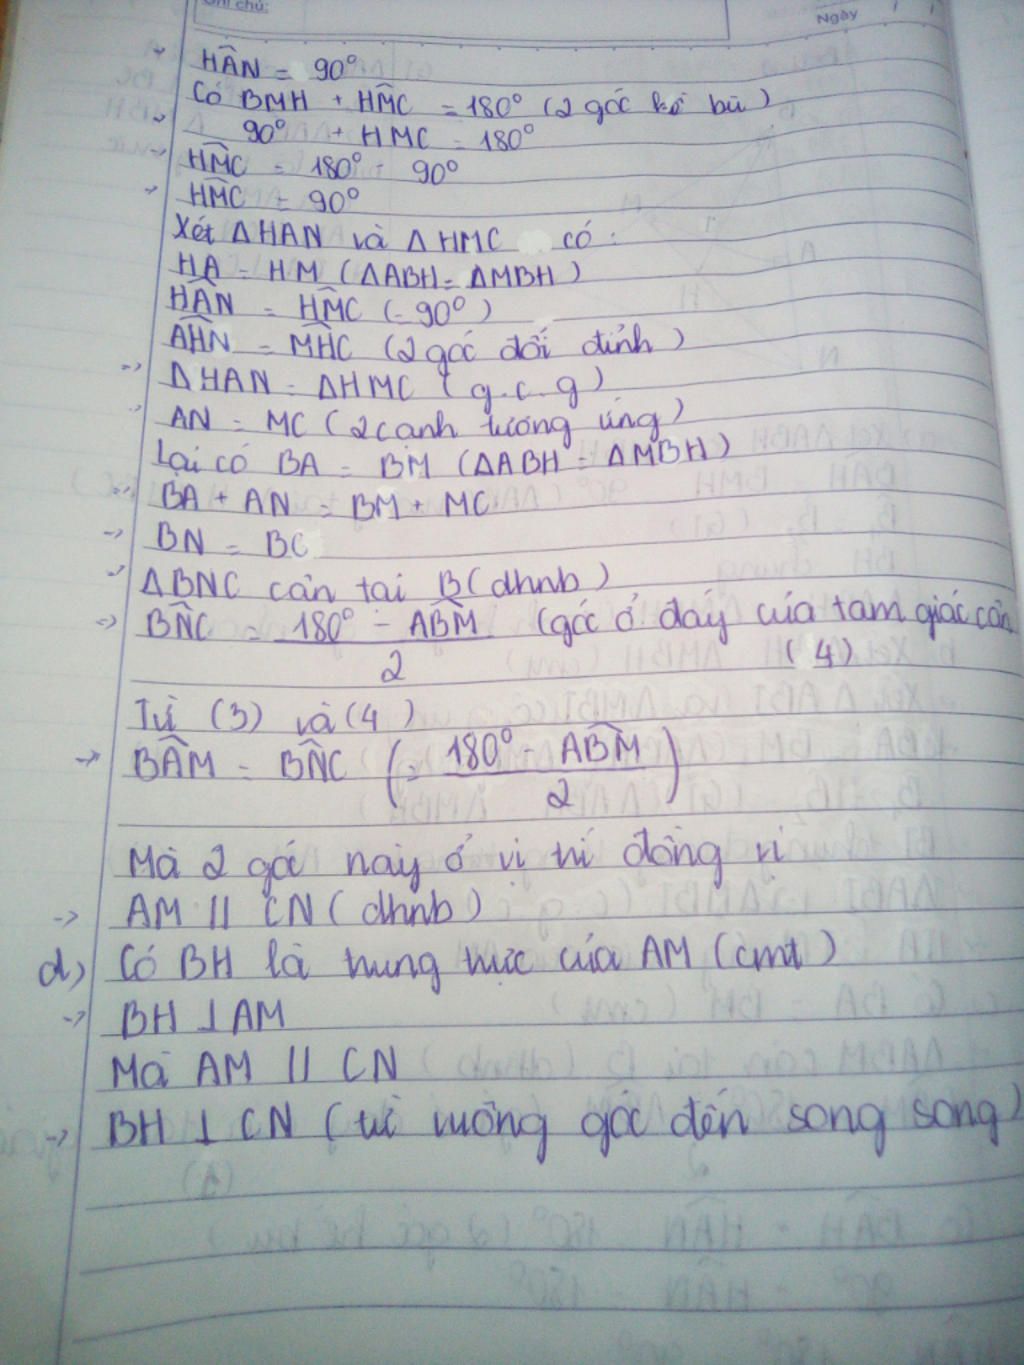 Ghi chú:
Ngày
-> HÂN = 90°
Có BMH + HM̂C = 180° (2 góc kề bù)
-> 90° + HMC = 180°
-> HM̂C = 180° - 90°
-> HM̂C = 90°
Xét ΔHAN và ΔHMC có:
HA = HM (ΔABH = ΔMBH)
HÂN = HM̂C (= 90°)
AĤN = MĤC (2 góc đối đỉnh)
-> ΔHAN = ΔHMC (g.c.g)
-> AN = MC (2 cạnh tương ứng)
Lại có BA = BM (ΔABH = ΔMBH)
-> BA + AN = BM + MC
-> BN = BC
-> ΔBNC cân tại B (dhnb)
-> BN̂C = (180° - AB̂M)/2 (góc ở đáy của tam giác cân
(4)
Từ (3) và (4)
-> BÂM = BN̂C (= (180° - AB̂M)/2)
Mà 2 góc này ở vị trí đồng vị
-> AM // CN (dhnb)
d) Có BH là trung trực của AM (cmt)
-> BH ⊥ AM
Mà AM // CN
-> BH ⊥ CN (từ vuông góc đến song song)